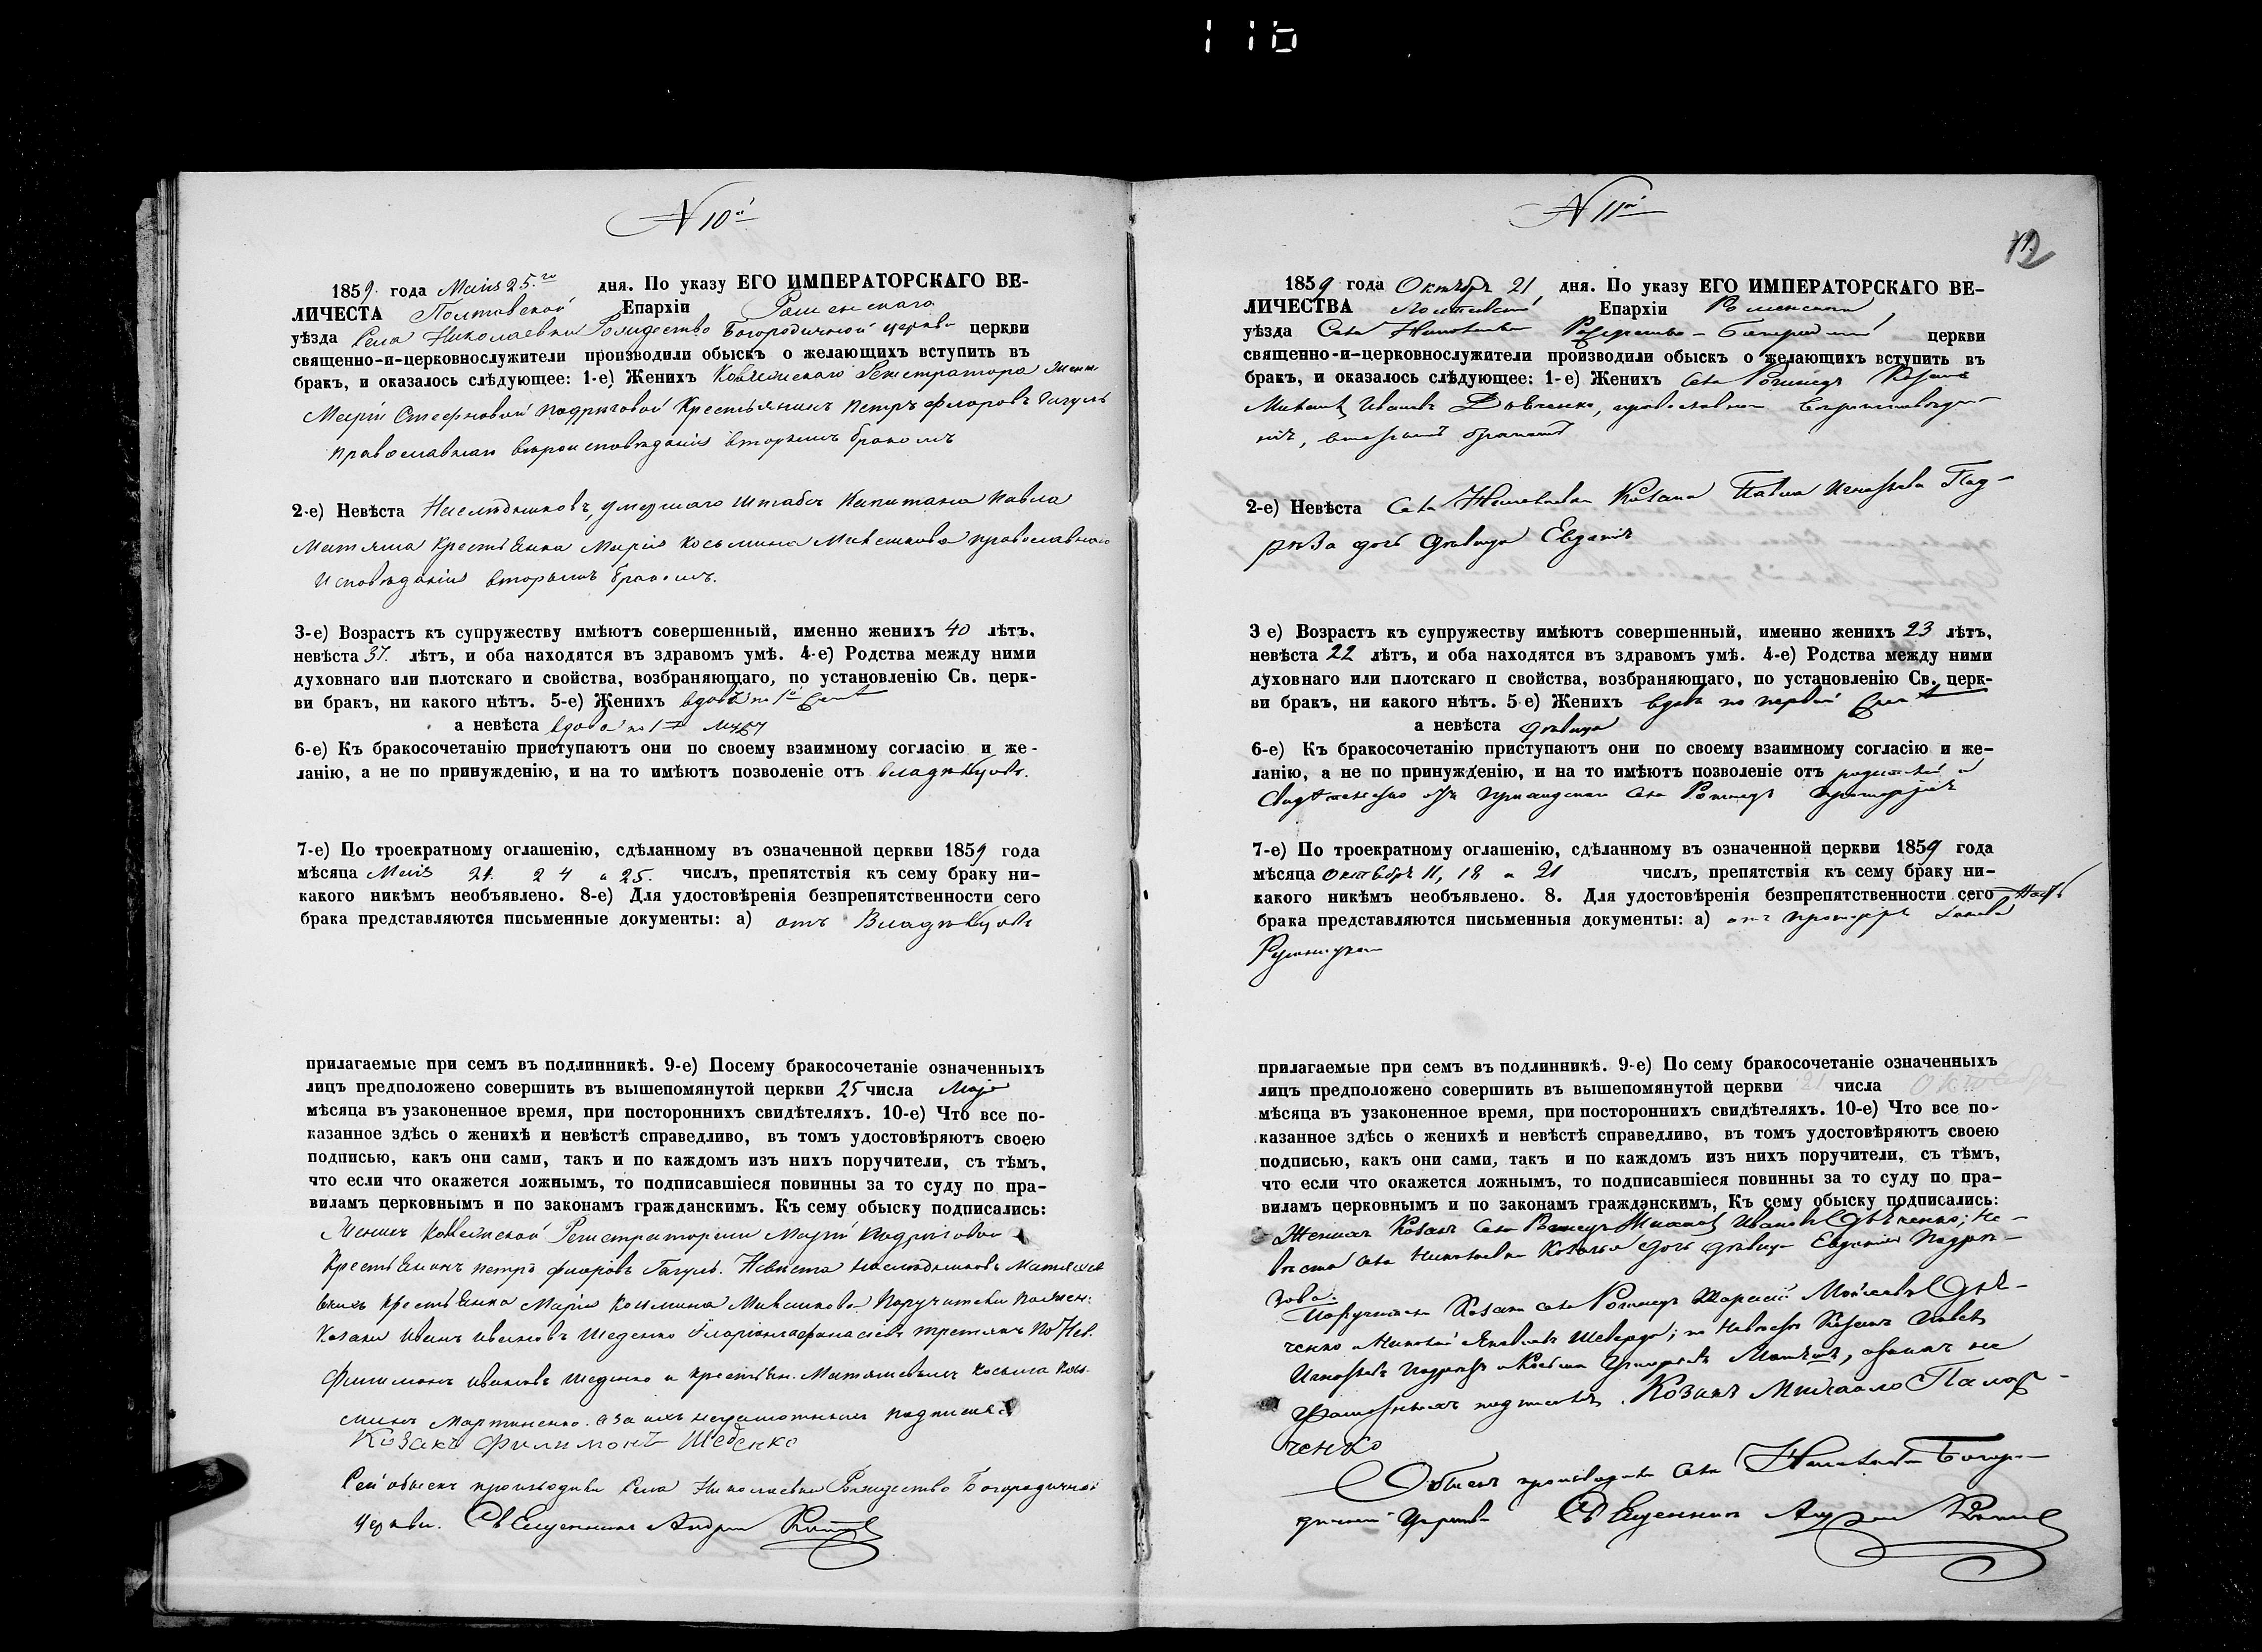 116
N 10й
1859. года Маія 25.го дня. По указу ЕГО ИМПЕРАТОРСКАГО ВЕ-
ЛИЧЕСТА Полтавской Епархіи Роменскаго
уѣзда Села Николаевки Рождество Богородичной церкви церкви
священно-и-церковнослужители производили обыскъ о желающихъ вступить въ
бракъ, и оказалось слѣдующее: 1-е) Женихъ Регистратора
Маріи Стефановой Крестьянинъ Петръ Флоровъ Гагуль
православнаго вѣроисповѣданія вторымъ бракомъ
2-е) Невѣста Наслѣдниковъ, умершаго Штабсъ Капитана Павла
Матяша Крестьянка Марія Косьмина православнаго
исповѣданія вторымъ бракомъ.
3-е) Возрастъ къ супружеству имѣютъ совершенный, именно женихъ 40 лѣтъ.
невѣста 37. лѣтъ, и оба находятся въ здравомъ умѣ. 4-е) Родства между ними
духовнаго или плотскаго и свойства, возбраняющаго, по установленію Св. церк-
ви бракъ, ни какого нѣтъ. 5-е) Женихъ вдовъ по 1й
а невѣста вдова по 1 мужу
6-е) Къ бракосочетанію приступаютъ они по своему взаимному согласію и же-
ланію, а не по принужденію, и на то имѣютъ позволеніе отъ владѣльцовъ.
7-е) По троекратному оглашенію, сдѣланному въ означенной церкви 1859 года
мѣсяца Маія 21. 24 и 25. числъ, препятствія къ сему браку ни-
какого никѣмъ необъявлено. 8-е) Для удостовѣренія безпрепятственности сего
брака представляются письменные документы: а) отъ Владѣльцовъ
прилагаемые при семъ въ подлинникѣ. 9-е) Посему бракосочетаніе означенныхъ
лицъ предположено совершить въ вышепомянутой церкви 25 числа Маја
мѣсяца въ узаконенное время, при постороннихъ свидѣтеляхъ. 10-е) Что все по-
казанное здѣсь о женихѣ и невѣстѣ справедливо, въ томъ удостовѣряютъ своею
подписью, какъ они сами, такъ и по каждомъ изъ нихъ поручители, съ тѣмъ,
что если что окажется ложнымъ, то подписавшіеся повинны за то суду по пра-
виламъ церковнымъ и по законамъ гражданскимъ. Къ сему обыску подписались:
Женихъ Регистраторши Маріи
Крестьянинъ Петръ Флоровъ Гагуль. Невѣста наслѣдниковъ
Крестьянка Марія Косьмина Поручители
Козаки Иванъ Ивановъ Шеденко
Филимонъ Ивановъ Шеденко и Косьма
Мартиненко. а за ихъ неграмотныхъ подписался
Козакъ Филимонъ Шеденко
Сей обыскъ производили Села Николаевки Рождество Богородичной
Церкви. Священникъ Андрей
N 11й
12
1859 года Октября 21, дня. По указу ЕГО ИМПЕРАТОРСКАГО ВЕ-
ЛИЧЕСТВА Полтавской Епархіи Роменскаго
уѣзда Села Николаевки Рождество-Богородичной церкви
священно-и-церковнослужители производили обыскъ о желающихъ вступить въ
бракъ, и оказалось слѣдующее: 1-е) Женихъ Села Козакъ
Михаилъ Ивановъ Дьяченко, православнаго вѣроисповѣда-
нія, вторымъ бракомъ
2-е) Невѣста Села Николаевки Козака Павла Игнатьева Под-
рѣза дочь дѣвица Евдокія
3 е) Возрастъ къ супружеству имѣютъ совершенный, именно женихъ 23 лѣтъ,
невѣста 22 лѣтъ, и оба находятся въ здравомъ умѣ. 4-е) Родства между ними
духовнаго или плотскаго п свойства, возбраняющаго, по установленію Св. церк-
ви бракъ, ни какого нѣтъ. 5 е) Женихъ вдовъ по первой
а невѣста дѣвица
6-е) Къ бракосочетанію приступаютъ они по своему взаимному согласію и же-
ланію, а не по принужденію, и на то имѣютъ позволеніе отъ родителей и
села
7-е) По троекратному оглашенію, сдѣланному въ означенной церкви 1859 года
мѣсяца Октября 11, 18 и 21 числъ, препятствія къ сему браку ни-
какого никѣмъ необъявлено. 8. Для удостовѣренія безпрепятственности сего
брака представляются письменныя документы: а) отъ
прилагаемые при семъ въ подлинникѣ. 9-е) По сему бракосочетаніе означенныхъ
лицъ предположено совершить въ вышепомянутой церкви 21 числа Октября
мѣсяца въ узаконенное время, при постороннихъ свидѣтеляхъ. 10-е) Что все по-
казанное здѣсь о женихѣ и невѣстѣ справедливо, въ томъ удостовѣряютъ своею
подписью, какъ они сами, такъ и по каждомъ изъ нихъ поручители, съ тѣмъ,
что если что окажется ложнымъ, то подписавшіеся повинны за то суду по пра-
виламъ церковнымъ и по законамъ гражданскимъ, Къ сему обыску подписались:
Женихъ Козакъ Села Михаилъ Ивановъ Дьяченко; Не-
вѣста Села Николаевки дочь дѣвица Евдокія Подрѣ-
зова.
Поручители Козаки села
ченко и Николай Яковлевъ по невѣстѣ Козаки Павелъ
Игнатьевъ
подписался Козакъ Михайло Палар-
ченко
Обыскъ производили Села Николаевки Богоро-
дичной Церкви Священникъ Андрей